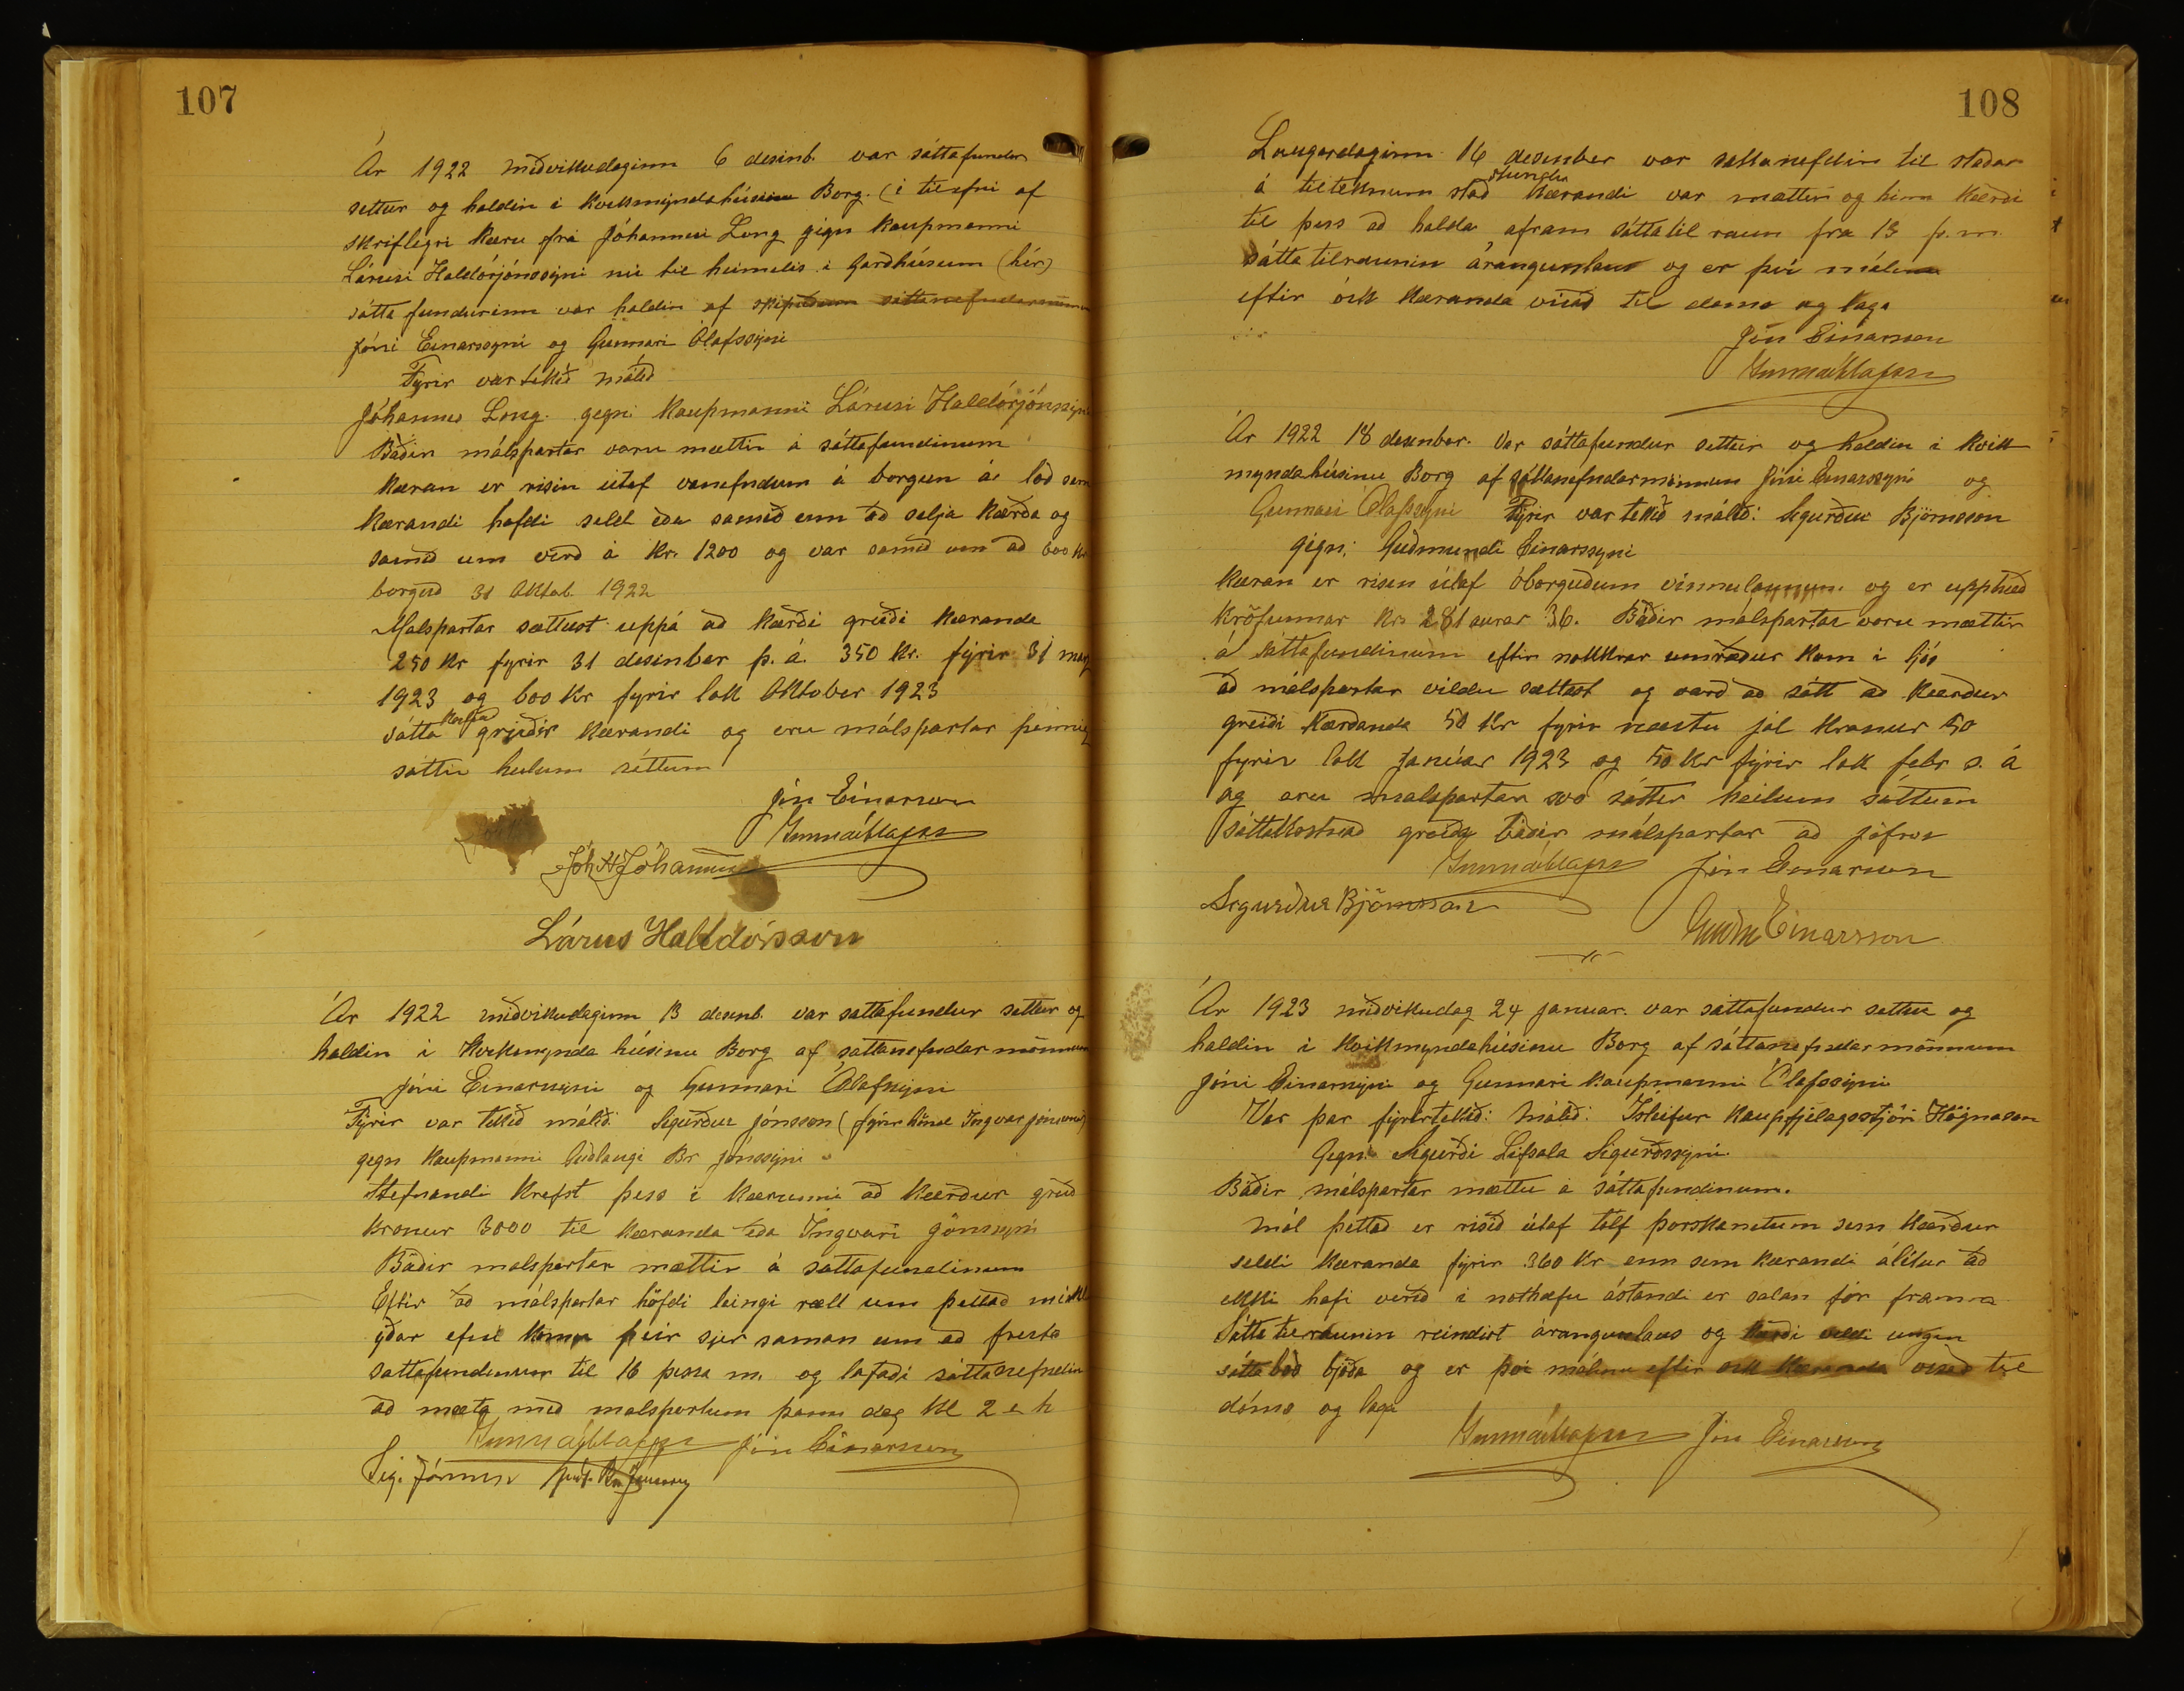 107
Ár 1922 miðvikudaginn 6 desinb. var sáttafundur
settur og haldin i kvikmyndahúsinu Borg. (i tilefni af
skriflegri kæru frá Jóhannesi Long gign kaupmanni
Lárusi Haldórjónssyni nú til heimilis i Garðhúsum (hér)
sátta fundurinn var haldin af skipuðum sáttanefndarmönnum
Jóni Einarssyni og Gunnari Ólafssyni
Fyrir var tekið málið
Jóhannes Long. gegn: kaupmanni Lárusi Haldórjónssyni
Báðir málspartar voru mættir á sáttafundinum
Kæran er risin útaf vanefndum á borgun á lóð sem
kærandi hafdi selt eða samið um að selja kærða og
samið um verð á kr. 1200 og var samið um að 600 kr
borgað 31 Oktob. 1922
Malspartar sættust uppá að kærði greiði kæranda
250 kr fyrir 31 desinber þ. á. 350 kr. fyrir 31 may
1923 og 600 kr fyrir lok Oktober 1923
sátta kostnað greiðir kærandi og eru málspartar þannig
sáttir heilum sáttum
Jón Einarsson
Gunnar Ólafsson
Jóh H Jóhannss
Lárus Halldórsson
Ár 1922 miðvikudaginn 13 desenb. var sattafundur settur og
haldin i kvikmynda húsinu Borg af sattanefndar mönnum
Jóni Einarssyni og Gunnari Ólafssyni
Fyrir var tekið málið: Sigurður Jónsson (fyrir hönd Ingvar Jónssonar)
gegn kaupmanni Guðlaugi Br Jónssyni
Stefnandi krefst þess i kærunni að kærður greiði
kronur 3000 til kæranda eða Ingvari Jónssyni
Báðir malspartar mættir á sáttafundinum
Eftir að málspartar höfdi leingi rætt um þettað
efni komu þeir sjer saman um að fresta
sattafundinum til 16 þessa m. og lofaði sáttanefndin
að mæta með malspörtum þann dag kl 2 e h
Gunnar Ólafsson Jón Einarsson
Sig. Jónsson Guðl. Br Jónsson
108
Laugardaginn 16 desember var sattanefdin til staðar
á tilteknum stað stundu kærandi var mættur og hinn kærði
til þess að halda afram sáttatil raun fra 13 þ.m.
sátta tilraunin árangurslaus og er því málinu
eftir ósk kæranda vísað til doms og laga
Jón Einarsson
Gunnar Ólafsson
Ár 1922 18 desenber. Var sáttafundur settur og haldin i kvik
myndahúsinu Borg af sáttanefndarmönnum Jóni Einarssyni og
Gunnari Ólafssyni Fyrir var tekið málið: Sigurður Björnsson
gign: Guðmundi Einarssyni
Kæran er risin útaf óborguðum vinnulaunum og er upphæð
kröfunnar kr. 281 aurar 36. Báðir málspartar voru mættir
á sáttafundinum eftir nokkrar umræður kom i ljós
að málspartar vildu sættast og varð að sátt að kærður
greiði kærðanda 50 kr fyrir næstu jól kronur 50
fyrir lok Janúar 1923 og 50 kr fyrir lok febr s. á
og eru malspartar svo sáttir heilum sáttum
Sáttakostnað greiða báðir málspartar að jöfnu
Gunnar Ólafsson Jón Einarsson
Sigurður Björnsson
Guðm Einarsson
Ár 1923 miðvikudag 24 januar. var sáttafundur settur og
haldin i kvikmyndahúsinu Borg af sáttanefndarmönnum
Jóni Einarssyni og Gunnari kaupmanni Ólafssyni
Var þar fyrirtekið: Málið: Ísleifur kaupfjelagsstjóri Högnason
Gegn: Sigurði Lifsala Sigurðssyni.
Báðir málspartar mættu á sáttafundinum.
Mál þettað er risið útaf tólf þorskanetum sem kærður
seldi kæranda fyrir 360 kr enn sem kærandi álítur að
ekki hafi verið i nothæfu ástandi er salan fór fram
Sátta tilraunin reindist árangurslaus og kærði vildi ungin
sátta boð bjóða og er þvi málinu eftir ósk kæranda vísað til
dóms og laga
Gunnar Ólafsson Jón Einarsson